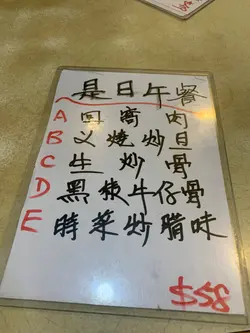 是日午餐
A 回窩肉
B 义燒炒旦
C 生炒骨
D 黑椒牛仔骨
E 時菜炒腊味
$58